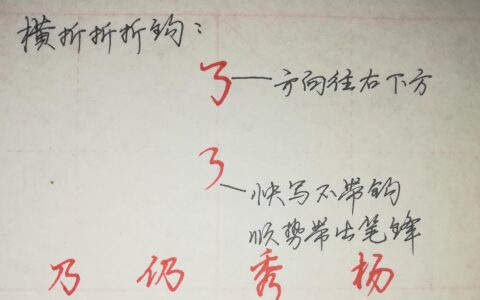 横折折折钩：
㇡——方向往右下方
㇡
快写不带钩
顺势带出笔锋
乃 仍 秀 杨